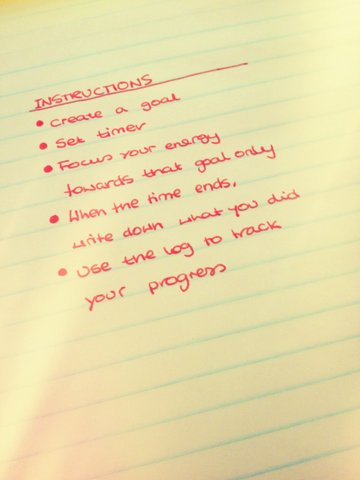 INSTRUCTIONS
• Create a goal
• Set timer
• Focus your energy
towards that goal only
• When the time ends,
write down what you did
• Use the log to track
your progress